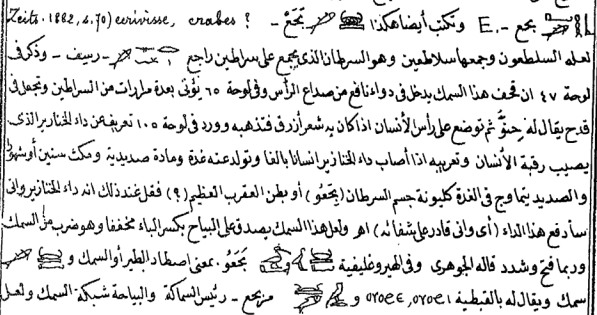 Zeits. 1882, s. 70) ecrivisse, crabes ? يجع – E. وتكتب أيضا هكذا يَجَعْ –
لعله السلطعون وجمعها سلاطعين وهو السرطان الذى يجمع على سراطين راجع – رسيف – وذكر فى
لوحة ٤٧ ان قحف هذا السمك يدخل فى دواء نافع من صداع الرأس وفى لوحة ٦٥ يؤتى بعدة مرارات من السراطين وتجعل فى
قدح يقال له ثم توضع على رأس الأنسان اذا كان به شعر أزرق فتذهبه وورد فى لوحة ١٠٥ تعريف عن داء الخنازير الذى
يصيب رقبة الأنسان وتعريبه اذا أصاب داء الخنازير انسانا بالغا وتولد عنه غدة ومادة صديدية ومكث سنين أو شهورا
والصديد يتماوج فى الغدة كليونة جسم السرطان (يجعو) أو بطن العقرب العظيم (؟) فقل عند ذلك انه داء الخنازير وانى
سأدفع هذا الداء (أى وانى قادر على شفائه) اهـ ولعل هذا السمك يصدق على البياح بكسر الباء مخففا وهو ضرب من السمك
وربما فتح وشدد قاله الجوهرى وفى الهيروغليفية يَجَعُو. بمعنى اصطاد الطير أو السمك و
سمك ويقال له بالقبطية ⲟⲣⲟⲉⲓ, ⲟⲣⲟⲉⲉ و مر يجع – رئيس السماكة والبياحة شبكة السمك ولعل